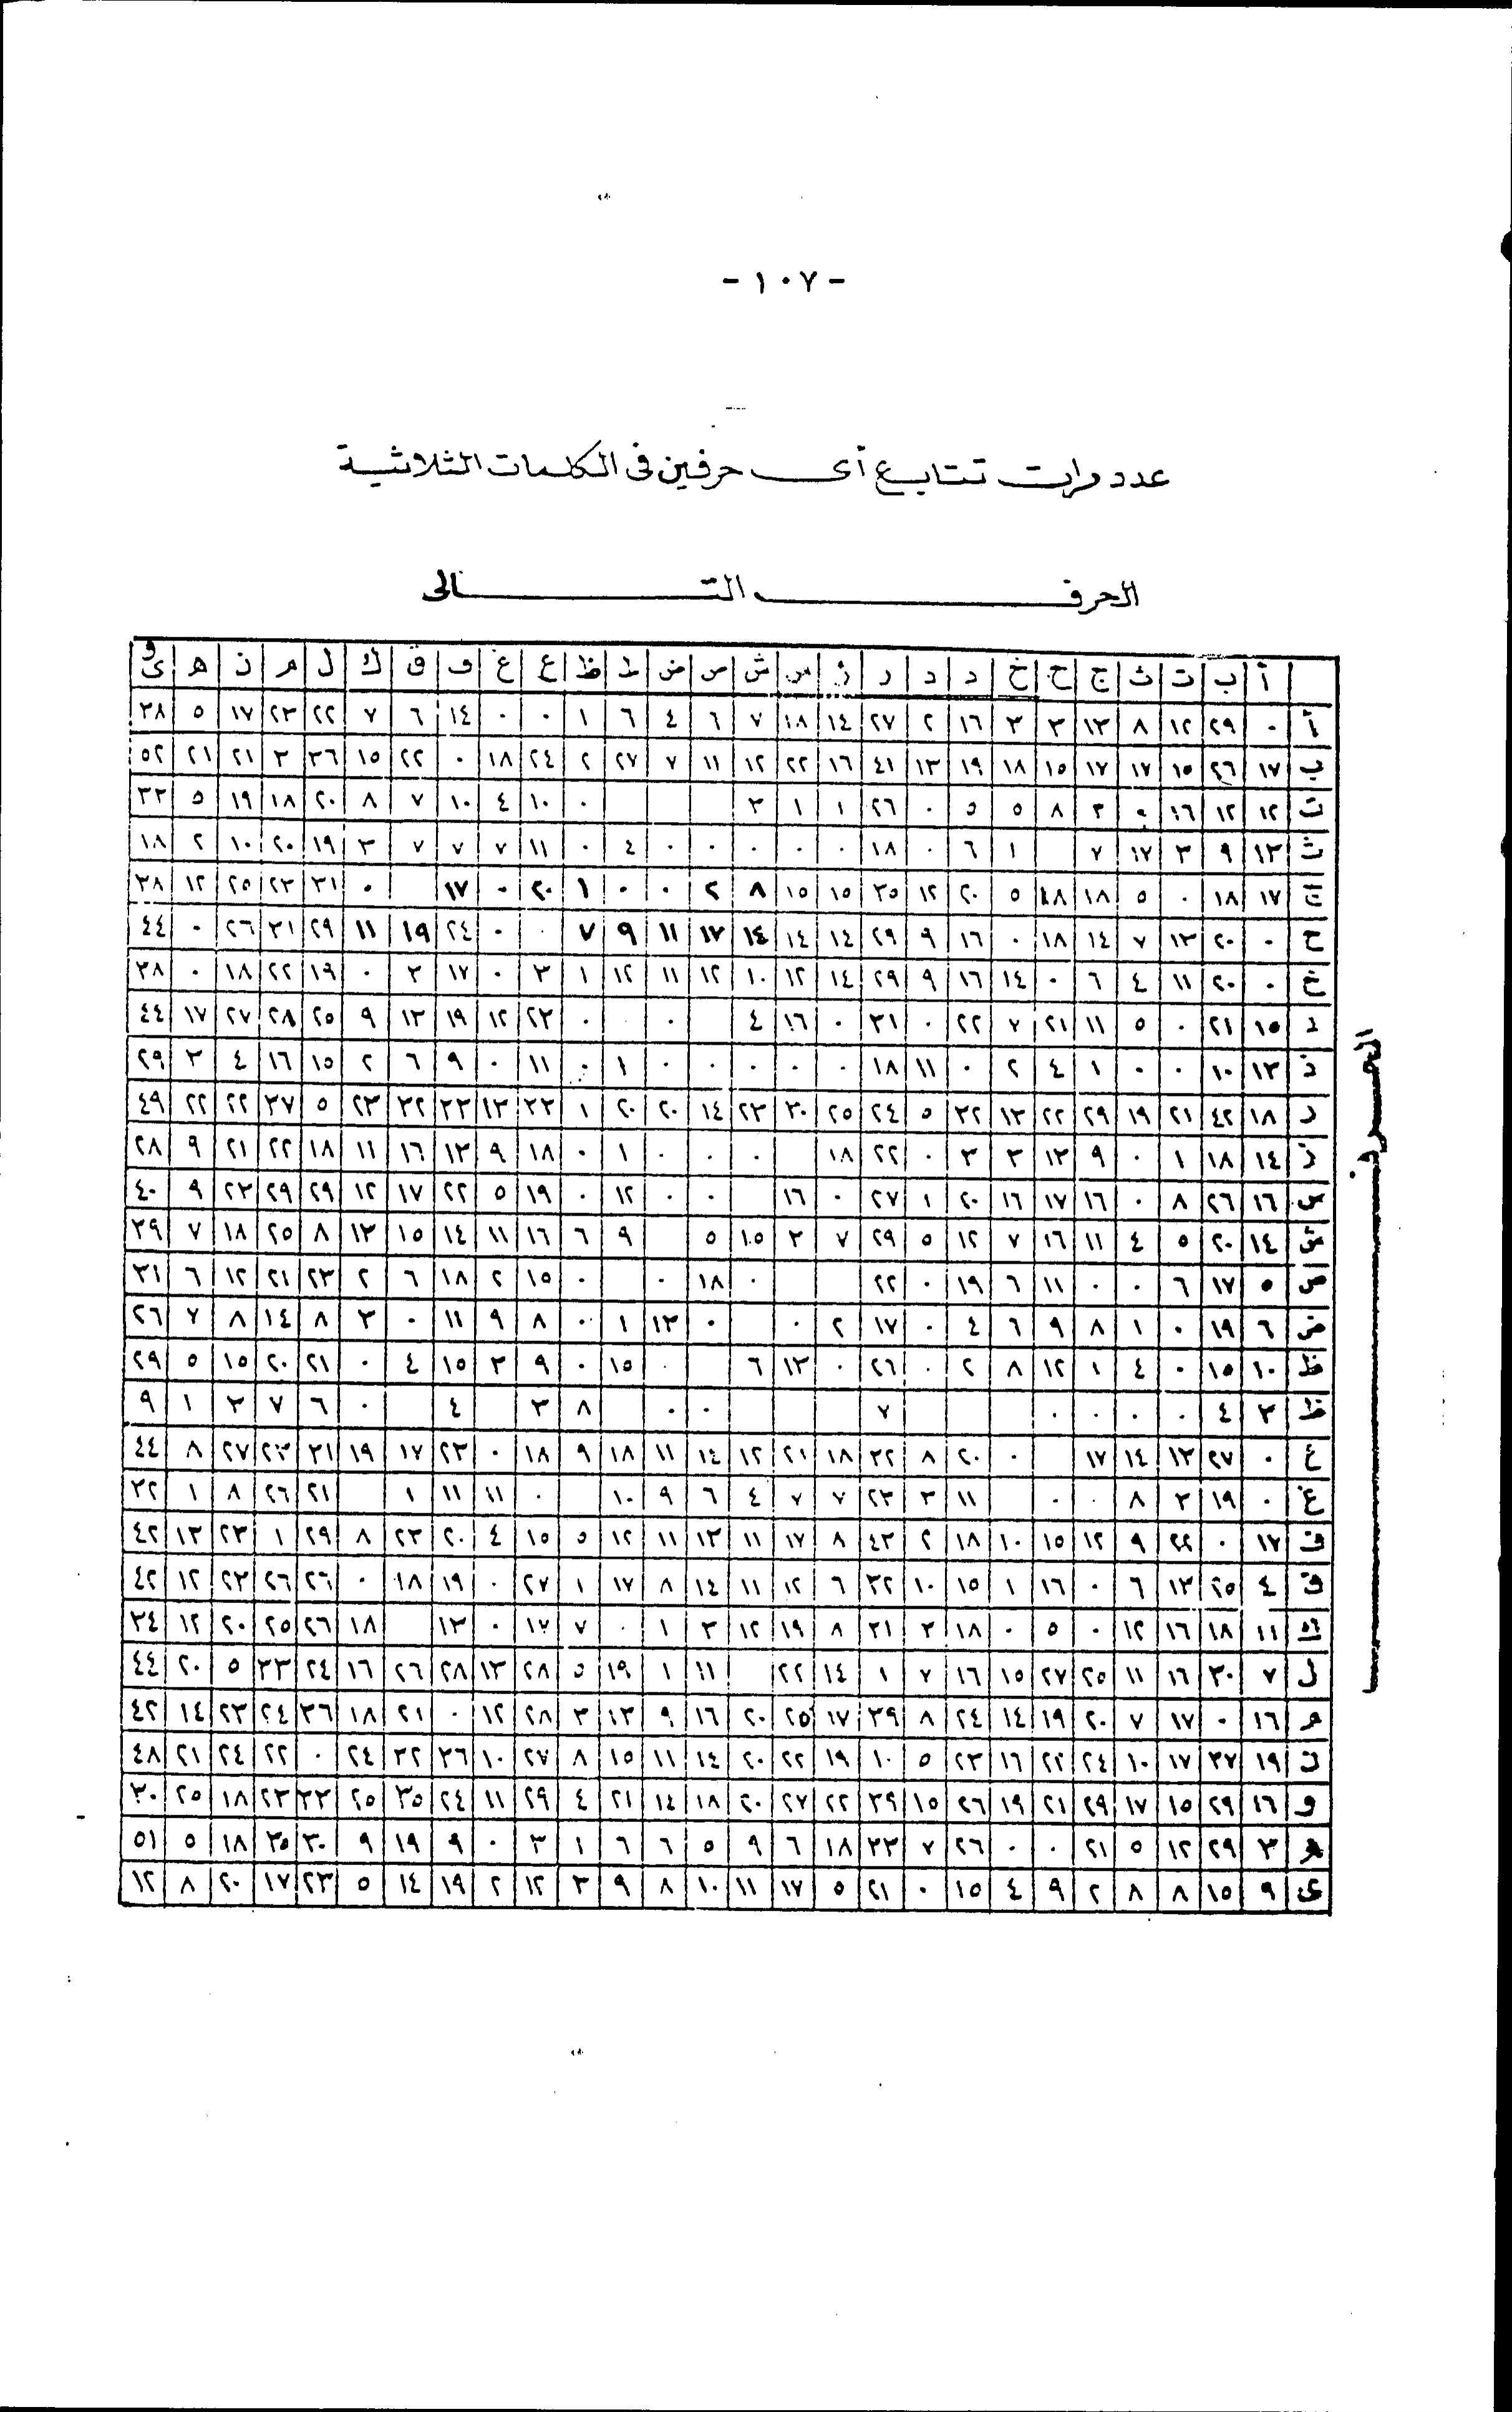 - ١٠٧ -
عدد مرات تتابع أى حرفين فى الكلمات الثلاثية
الحرف التالى
أ ب ت ث ج ح خ د د ر ز س ش ص ض ط ظ ع غ ف ق ك ل م ن ه وى
أ ٠ ٢٩ ١٢ ٨ ١٣ ٣ ٣ ١٦ ٢ ٢٧ ١٤ ١٨ ٧ ٦ ٤ ٦ ١ ٠ ٠ ١٤ ٦ ٧ ٢٢ ٢٣ ١٧ ٥ ٣٨
ب ١٧ ٢٦ ١٥ ١٧ ١٧ ١٥ ١٨ ١٩ ١٣ ٤١ ١٦ ٢٢ ١٢ ١١ ٧ ٢٧ ٢ ٢٤ ١٨ ٠ ٢٢ ١٥ ٣٦ ٣ ٢١ ٢١ ٥٢
ت ١٢ ١٢ ١٦ ٠ ٣ ٨ ٥ ٥ ٠ ٢٦ ١ ١ ٣ ٠ ١٠ ٤ ١٠ ٧ ٨ ٢٠ ١٨ ١٩ ٥ ٣٢
ث ١٣ ٩ ٣ ١٧ ٧ ١ ٦ ٠ ١٨ ٠ ٠ ٠ ٠ ٠ ٤ ٠ ١١ ٧ ٧ ٧ ٣ ١٩ ٢٠ ١٠ ٢ ١٨
ج ١٧ ١٨ ٠ ٥ ١٨ ١٨ ٥ ٢٠ ١٢ ٣٥ ١٥ ١٥ ٨ ٢ ٠ ٠ ١ ٢٠ ٠ ١٧ ٠ ٣١ ٢٣ ٢٥ ١٢ ٣٨
ح ٠ ٢٠ ١٣ ٧ ١٤ ١٨ ٠ ١٦ ٩ ٢٩ ١٤ ١٤ ١٤ ١٧ ١١ ٩ ٧ ٠ ٠ ٢٤ ١٩ ١١ ٢٩ ٣١ ٢٦ ٠ ٤٤
خ ٠ ٢٠ ١١ ٤ ٦ ٠ ١٤ ١٦ ٩ ٢٩ ١٤ ١٢ ١٠ ١٢ ١١ ١٢ ١ ٣ ٠ ١٧ ٢ ٠ ١٩ ٢٢ ١٨ ٠ ٣٨
د ١٥ ٢١ ٠ ٥ ١١ ٢١ ٧ ٢٢ ٠ ٣١ ٠ ١٦ ٤ ٠ ٠ ٠ ٢٣ ١٢ ١٩ ١٣ ٩ ٢٥ ٢٨ ٢٧ ١٧ ٤٤
ذ ١٣ ١٠ ٠ ٠ ١ ٤ ٢ ٠ ١١ ١٨ ٠ ٠ ٠ ٠ ٠ ١ ٠ ١١ ٠ ٩ ٦ ٢ ١٥ ١٦ ٤ ٣ ٢٩
ر ١٨ ٤٢ ٢١ ١٩ ٢٩ ٢٢ ١٣ ٣٢ ٥ ٢٤ ٢٥ ٣٠ ٢٣ ١٤ ٢٠ ٢٠ ١ ٢٢ ١٣ ٣٣ ٣٢ ٢٣ ٥ ٣٧ ٢٢ ٢٢ ٤٩
ز ١٤ ١٨ ١ ٠ ٩ ١٣ ٣ ٣ ٠ ٢٢ ١٨ ٠ ٠ ٠ ١ ٠ ١٨ ٩ ١٣ ١٦ ١١ ١٨ ٢٢ ٢١ ٩ ٢٨
س ١٦ ٢٦ ٨ ٠ ١٦ ١٧ ١٦ ٢٠ ١ ٢٧ ٠ ١٦ ٠ ٠ ١٢ ٠ ١٩ ٥ ٢٢ ١٧ ١٢ ٢٩ ٢٩ ٢٣ ٩ ٤٠
ش ١٤ ٢٠ ٥ ٤ ١١ ١٦ ٧ ١٢ ٥ ٢٩ ٧ ٢ ١٥ ٥ ٩ ٦ ١٦ ١١ ١٤ ١٥ ١٣ ٨ ٢٥ ١٨ ٧ ٣٩
ص ٥ ١٧ ٦ ٠ ٠ ١١ ٦ ١٩ ٠ ٢٢ ٠ ١٨ ٠ ٠ ١٥ ٢ ١٨ ٦ ٢ ٢٣ ٢١ ١٢ ٦ ٣١
ض ٦ ١٩ ٠ ١ ٨ ٩ ٦ ٤ ٠ ١٧ ٢ ٠ ٠ ١٣ ١ ٠ ٨ ٩ ١١ ٠ ٣ ٨ ١٤ ٨ ٧ ٢٦
ط ١٠ ١٥ ٠ ٤ ١ ١٢ ٨ ٢ ٠ ٢٦ ٠ ١٣ ٦ ٠ ١٥ ٠ ٩ ٣ ١٥ ٤ ٠ ٢١ ٢٠ ١٥ ٥ ٢٩
ظ ٣ ٤ ٠ ٠ ٠ ٠ ٧ ٠ ٠ ٨ ٣ ٤ ٠ ٦ ٧ ٣ ١ ٩
ع ٠ ٢٧ ١٣ ١٤ ١٧ ٠ ٢٠ ٨ ٣٢ ١٨ ٢١ ١٢ ١٤ ١١ ١٨ ٩ ١٨ ٠ ٢٣ ١٧ ١٩ ٣١ ٢٣ ٢٧ ٨ ٤٤
غ ٠ ١٩ ٣ ٨ ٠ ٠ ١١ ٣ ٢٣ ٧ ٧ ٤ ٦ ٩ ١٠ ٠ ١١ ١١ ١ ٢١ ٢٦ ٨ ١ ٣٢
ف ١٧ ٠ ٢٢ ٩ ١٢ ١٥ ١٠ ١٨ ٢ ٤٣ ٨ ١٧ ١١ ١٣ ١١ ١٢ ٥ ١٥ ٤ ٢٠ ٢٣ ٨ ٢٩ ١ ٢٣ ١٣ ٤٢
ق ٤ ٢٥ ١٣ ٦ ٠ ١٦ ١ ١٥ ١٠ ٣٢ ٦ ١٢ ١١ ١٤ ٨ ١٧ ١ ٢٧ ٠ ١٩ ١٨ ٠ ٢٦ ٢٦ ٢٣ ١٢ ٤٢
ك ١١ ١٨ ١٦ ١٢ ٠ ٥ ٠ ١٨ ٣ ٣١ ٨ ١٩ ١٢ ٣ ١ ٠ ٧ ١٧ ٠ ١٣ ١٨ ٢٦ ٢٥ ٢٠ ١٢ ٣٤
ل ٧ ٣٠ ١٦ ١١ ٢٥ ٢٧ ١٥ ١٦ ٧ ١ ١٤ ٢٢ ١١ ١ ١٩ ٥ ٢٨ ١٣ ٢٨ ٢٦ ١٦ ٢٤ ٣٣ ٥ ٢٠ ٤٤
م ١٦ ٠ ١٧ ٧ ٢٠ ١٩ ١٤ ٢٤ ٨ ٣٩ ١٧ ٢٥ ٢٠ ١٦ ٩ ١٣ ٣ ٢٨ ١٢ ٠ ٢١ ١٨ ٣٦ ٢٤ ٢٣ ١٤ ٤٢
ن ١٩ ٣٧ ١٧ ١٠ ٢٤ ٢٢ ١٦ ٢٣ ٥ ١٠ ١٩ ٢٢ ٢٠ ١٤ ١١ ١٥ ٨ ٢٧ ١٠ ٣٦ ٣٢ ٢٤ ٠ ٢٢ ٢٤ ٢١ ٤٨
و ١٦ ٢٩ ١٥ ١٧ ٢٩ ٢١ ١٩ ٢٦ ١٥ ٣٩ ٢٢ ٢٧ ٢٠ ١٨ ١٤ ٢١ ٤ ٢٩ ١١ ٢٤ ٣٥ ٢٥ ٣٣ ٢٣ ١٨ ٢٥ ٣٠
ه ٣ ٢٩ ١٢ ٥ ٢١ ٠ ٠ ٢٦ ٧ ٣٣ ١٨ ٦ ٩ ٥ ٦ ٦ ١ ٣ ٠ ٩ ١٩ ٩ ٣٠ ٣٥ ١٨ ٥ ٥١
ى ٩ ١٥ ٨ ٨ ٢ ٩ ٤ ١٥ ٠ ٢١ ٥ ١٧ ١١ ١٠ ٨ ٩ ٣ ١٢ ٢ ١٩ ١٤ ٥ ٢٣ ١٧ ٢٠ ٨ ١٢
الحرف